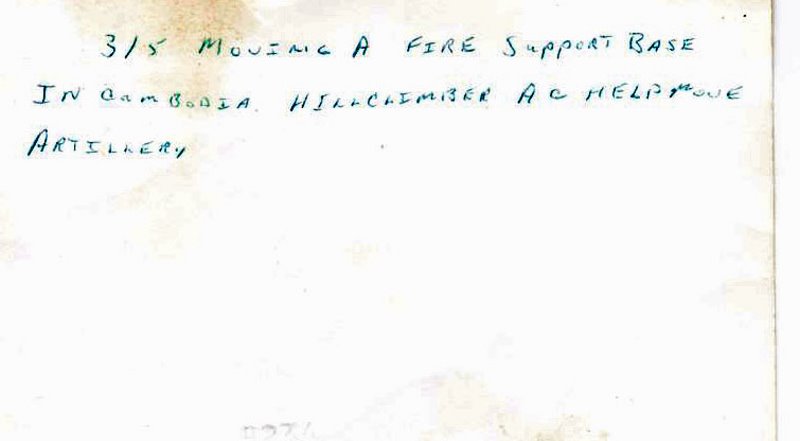 3/5 MOVING A FIRE SuppORT BASE
IN CamBODIA. HILLCLIMBER AC HELP MOVE
ARTILLERY